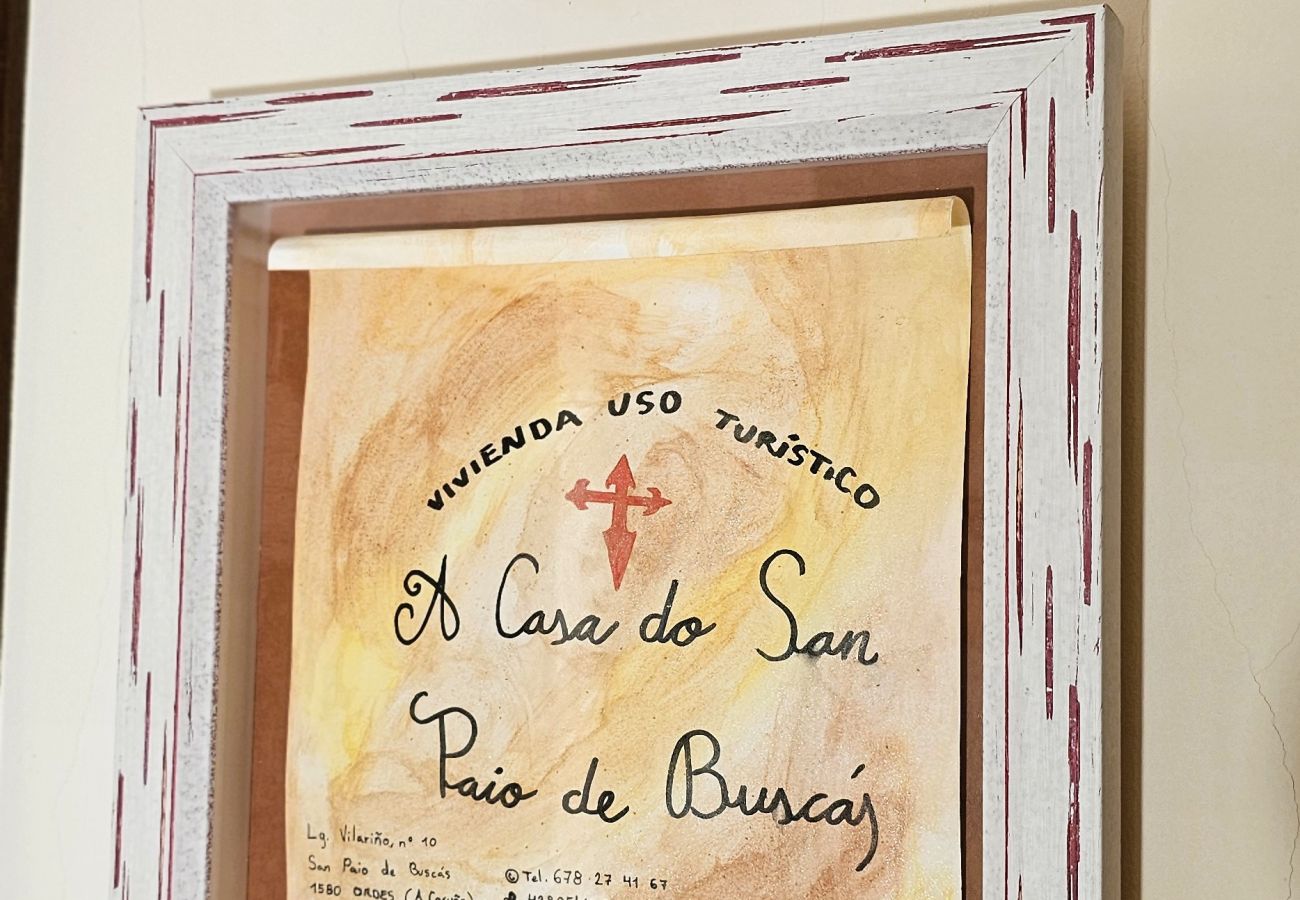 VIVIENDA USO TURÍSTICO
A Casa do San
Paio de Buscás
Lg. Vilariño, nº 10
San Paio de Buscás
Tel. 678 27 41 67
1580 ORDES (A Coruña)